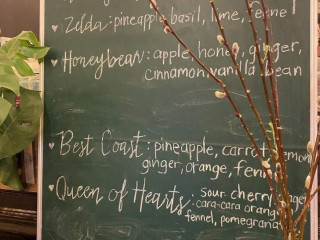 Zelda: pineapple, basil, lime, fennel
Honeybear: apple, honey, ginger,
cinnamon, vanilla bean
Best Coast: pineapple, carrot, lemon
ginger, orange, fennel
Queen of Hearts: sour cherry,
cara-cara orange
fennel, pomegranate